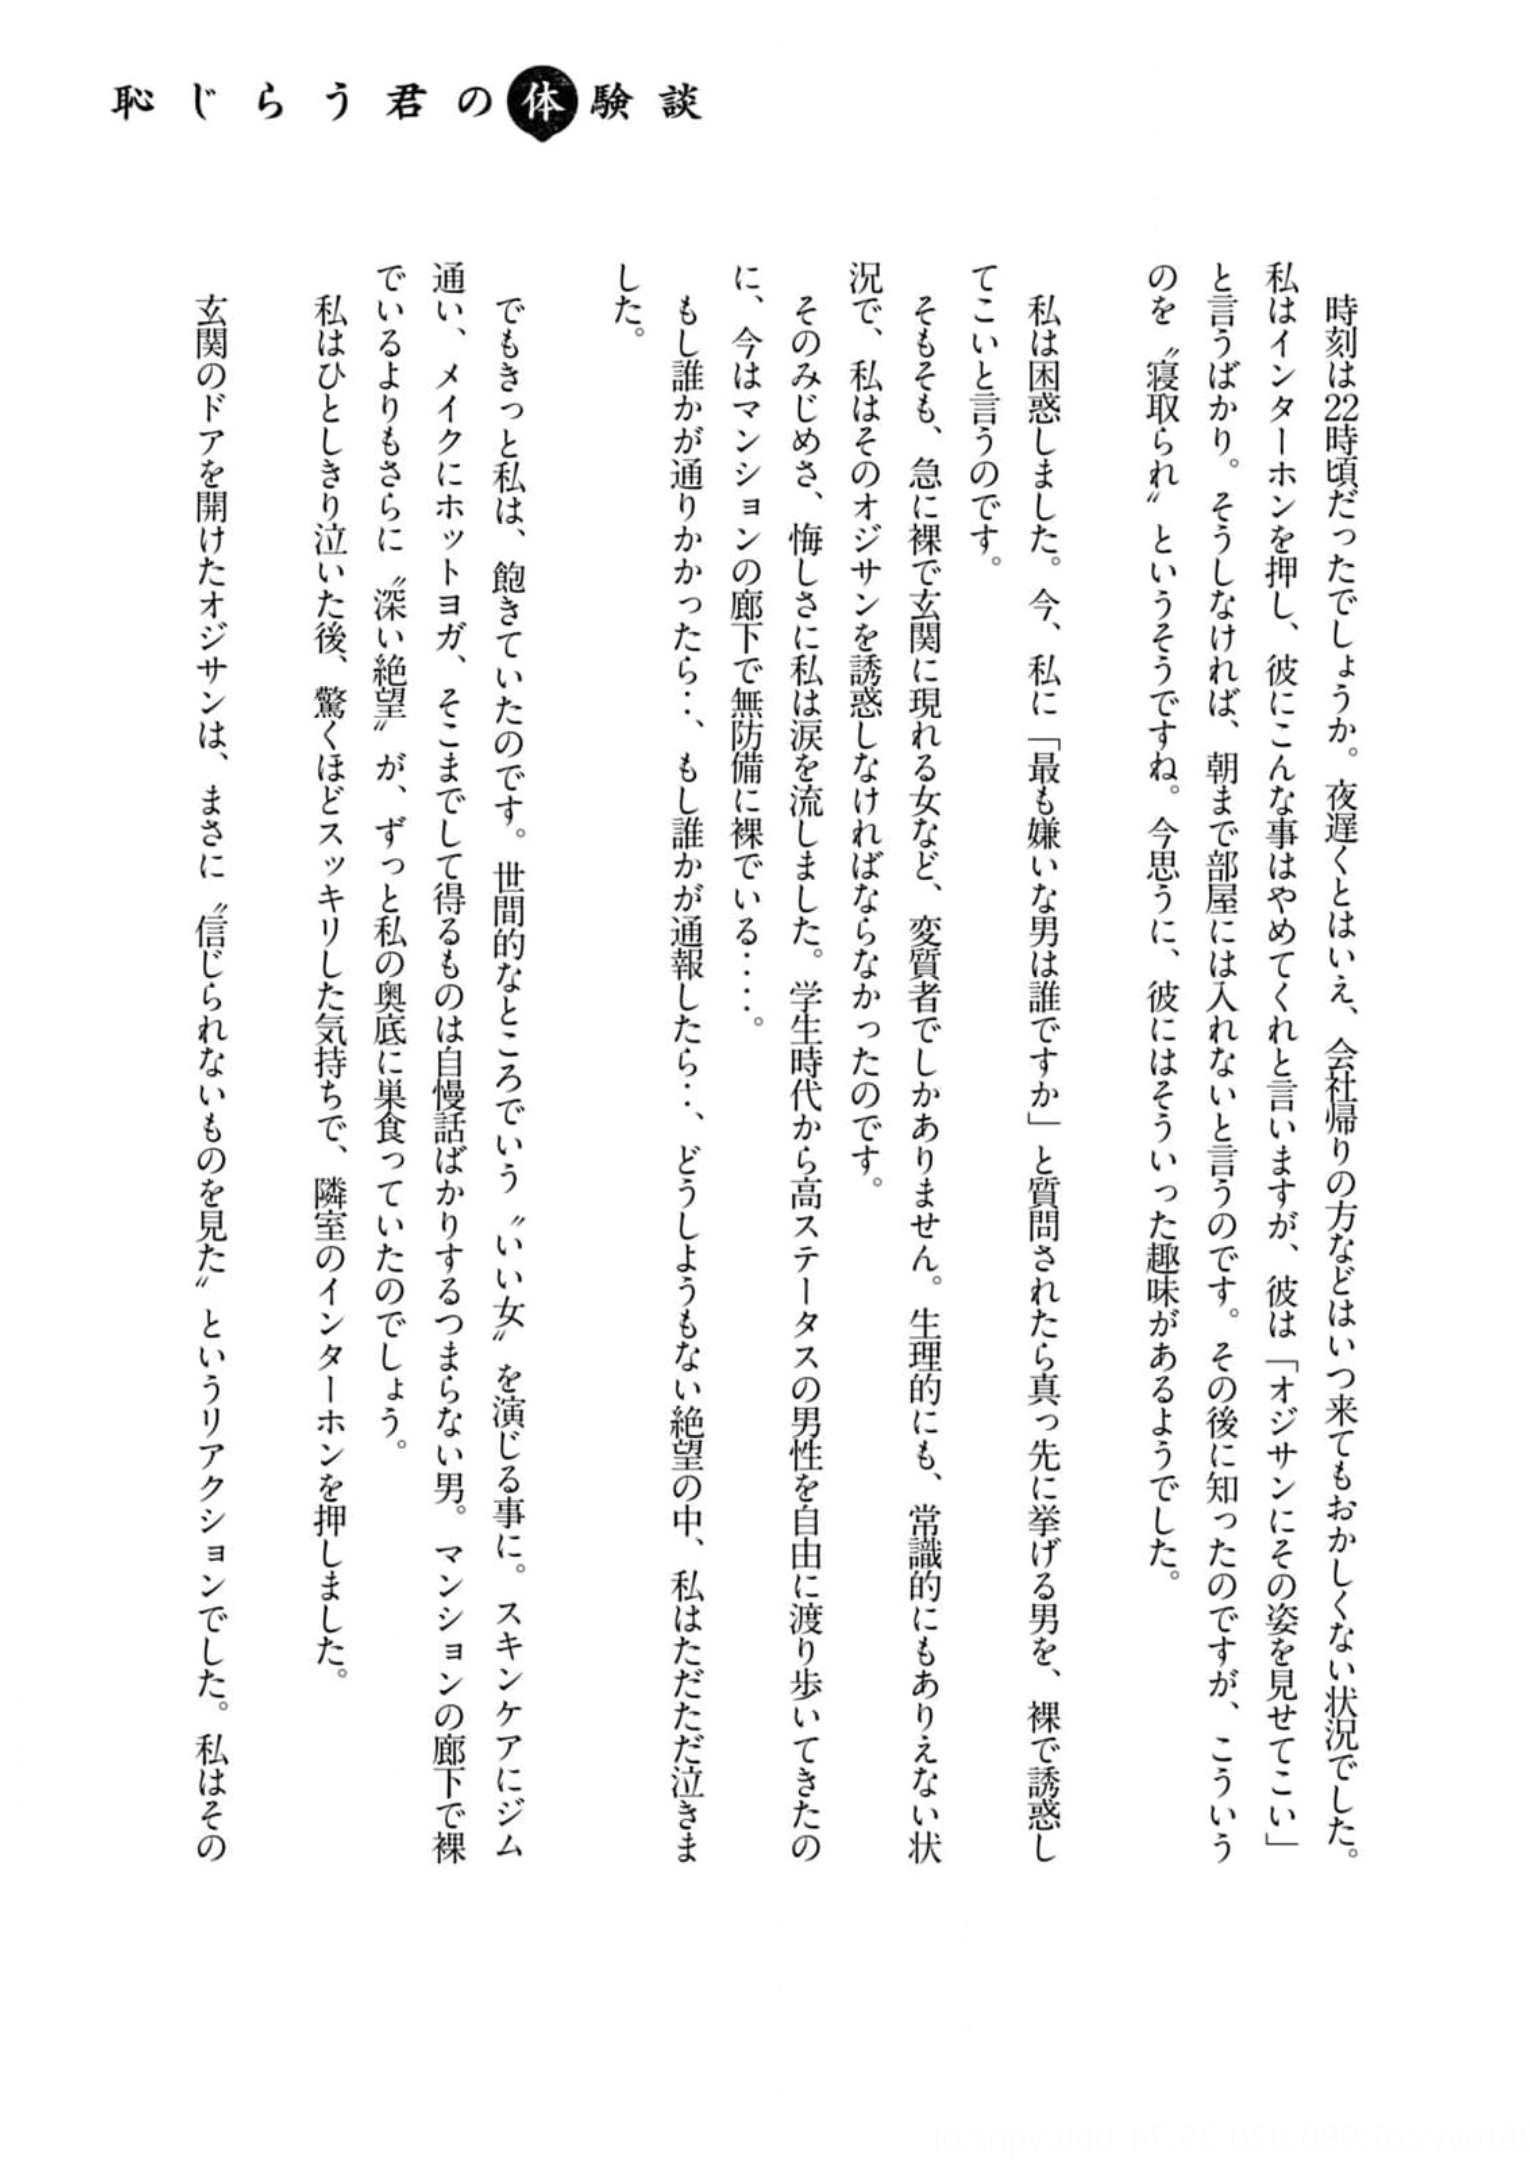 恥じらう君の体験談
時刻は22時頃だったでしょうか。夜遅くとはいえ、会社帰りの方などはいつ来てもおかしくない状況でした。
私はインターホンを押し、彼にこんな事はやめてくれと言いますが、彼は「オジサンにその姿を見せてこい」
と言うばかり。そうしなければ、朝まで部屋には入れないと言うのです。その後に知ったのですが、こういう
のを〝寝取られ〟というそうですね。今思うに、彼にはそういった趣味があるようでした。
私は困惑しました。今、私に「最も嫌いな男は誰ですか」と質問されたら真っ先に挙げる男を、裸で誘惑し
てこいと言うのです。
そもそも、急に裸で玄関に現れる女など、変質者でしかありません。生理的にも、常識的にもありえない状
況で、私はそのオジサンを誘惑しなければならなかったのです。
そのみじめさ、悔しさに私は涙を流しました。学生時代から高ステータスの男性を自由に渡り歩いてきたの
に、今はマンションの廊下で無防備に裸でいる‥‥。
もし誰かが通りかかったら‥、もし誰かが通報したら‥、どうしようもない絶望の中、私はただただ泣きま
した。
でもきっと私は、飽きていたのです。世間的なところでいう〝いい女〟を演じる事に。スキンケアにジム
通い、メイクにホットヨガ、そこまでして得るものは自慢話ばかりするつまらない男。マンションの廊下で裸
でいるよりもさらに〝深い絶望〟が、ずっと私の奥底に巣食っていたのでしょう。
私はひとしきり泣いた後、驚くほどスッキリした気持ちで、隣室のインターホンを押しました。
玄関のドアを開けたオジサンは、まさに〝信じられないものを見た〟というリアクションでした。私はその